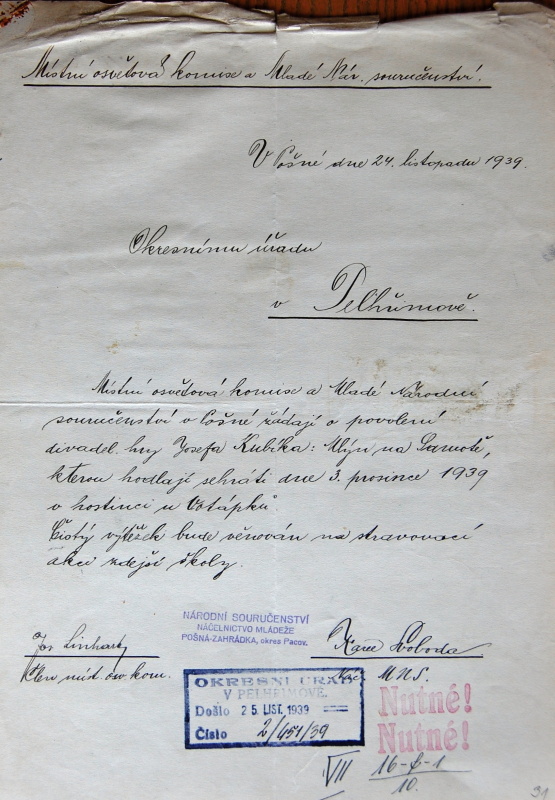 Místní osvětová komise a Mladé Nár. souručenství.
V Pošné dne 24. listopadu 1939.
Okresnímu úřadu
v Pelhřimově.
Místní osvětová komise a Mladé Národní
souručenství v Pošné žádají o povolení
divadel. hry Josefa Kubíka: Mlýn na Samotě,
kterou hodlají sehráti dne 3. prosince 1939
v hostinci u Votápků.
Čistý výtěžek bude věnován na stravovací
akci zdejší školy.
NÁRODNÍ SOURUČENSTVÍ
NÁČELNICTVO MLÁDEŽE
POŠNÁ-ZAHRÁDKA, okres Pacov.
Jos Linhart
Karel Svoboda
míst. osv. kom.
MNS.
OKRESNÍ ÚŘAD
V PELHŘIMOVĚ.
Došlo 25. LIST. 1939
Číslo 2/451/39
Nutné!
Nutné!
VII 16-6-1
10.
31